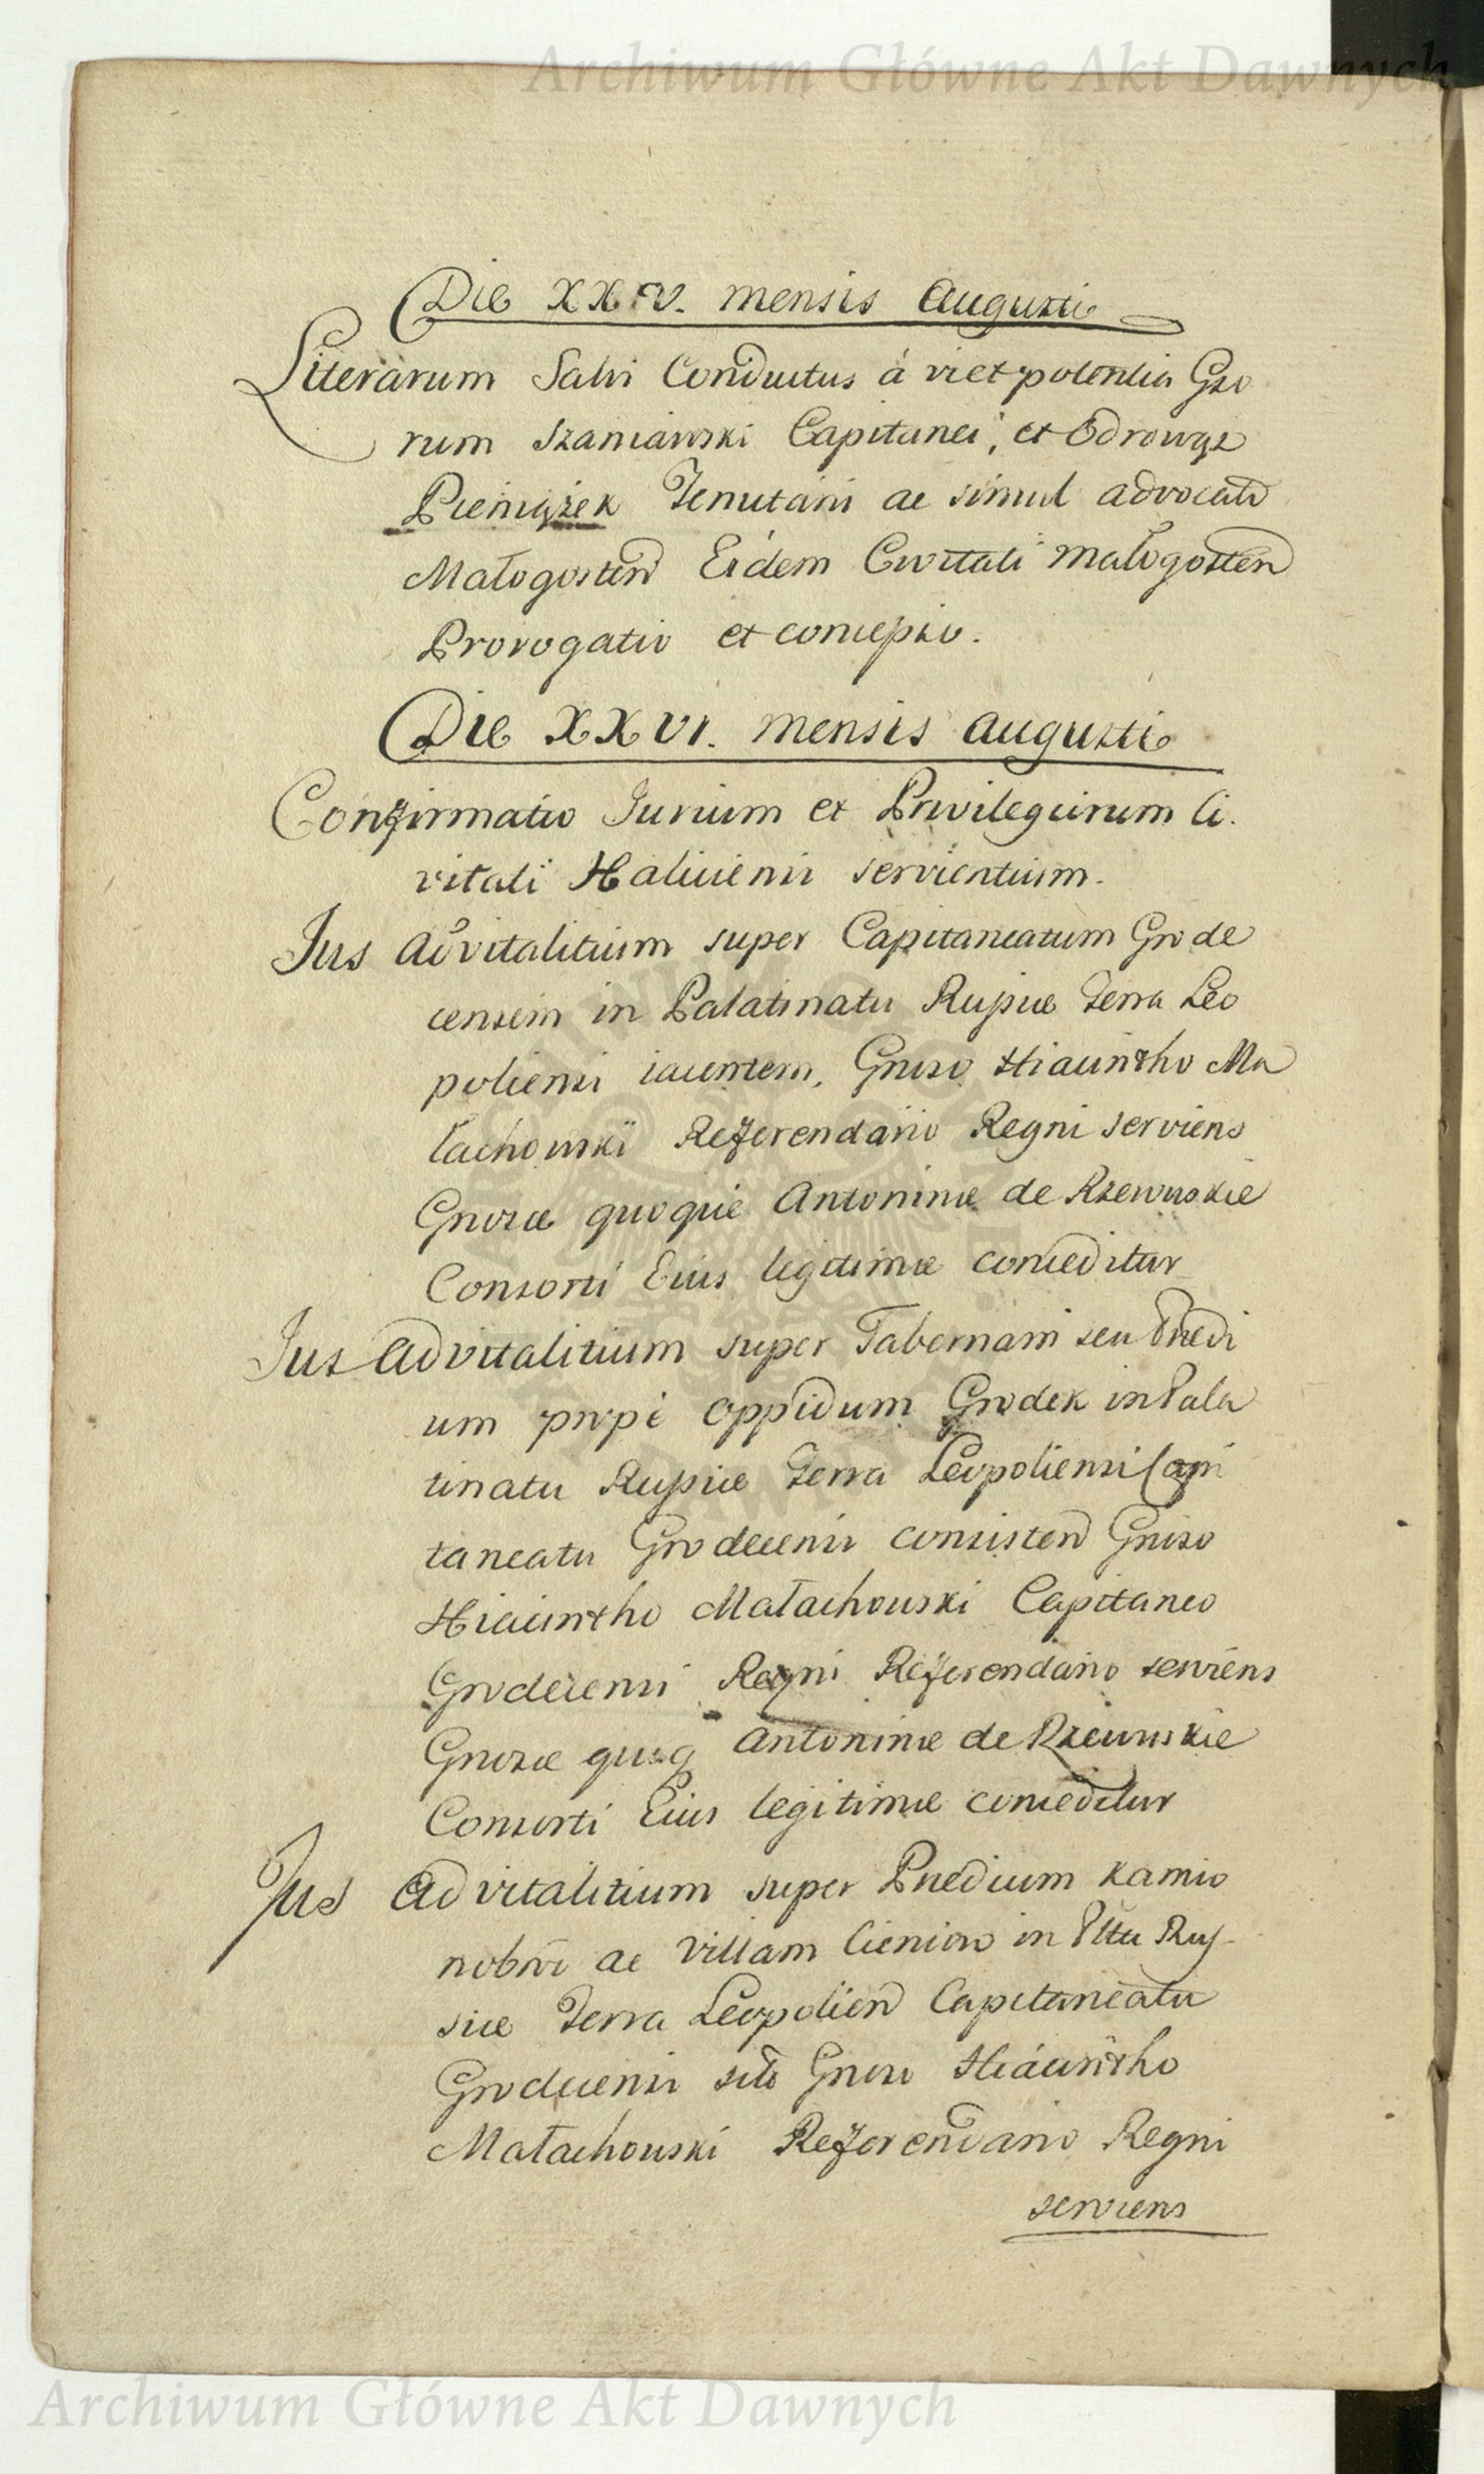 Archiwum Główne Akt Dawnych
Die XXIV. mensis Augusti
Literarum Salvi Conductus á vi et potentia Gso
rum Szaniawski Capitanei, et Odrowąz
Pieniążek Tenutarii ac simul advocati
Małogosten Eidem Civitati Małogosten
Prorogatio et concessio.
Die XXVI. mensis Augusti
Confirmatio Jurium et Privilegiorum Ci.
vitati Haliciensi servientium.
Jus advitalitium super Capitaneatum Grode
censem in Palatinatu Russiæ Terra Leo
poliensi iacentem, Gnoso Hiacintho Ma
łachowski Referendario Regni serviens
Gnosæ quoque Antoninæ de Rzewuskie
Consorti Eius legitimæ conceditur
Jus advitalitium super Tabernam seu Prædi
um prope oppidum Grodek in Pala
tinatu Russiæ Terra Leopoliensi Capi
taneatu Grodecensi consisten Gnoso
Hiacintho Małachowski Capitaneo
Grodecensi Regni Referendario serviens
Gnosæ quoq Antoninæ de Rzewuskie
Consorti Eius legitimæ conceditur
Jus advitalitium super Prædium Kamio
nobró ac Villam Cieniow in Pltu Rus-
siæ Terra Leopolien Capitaneatu
Grodecensi sito Gnoso Hiacintho
Małachowski Referendario Regni
serviens
Archiwum Główne Akt Dawnych